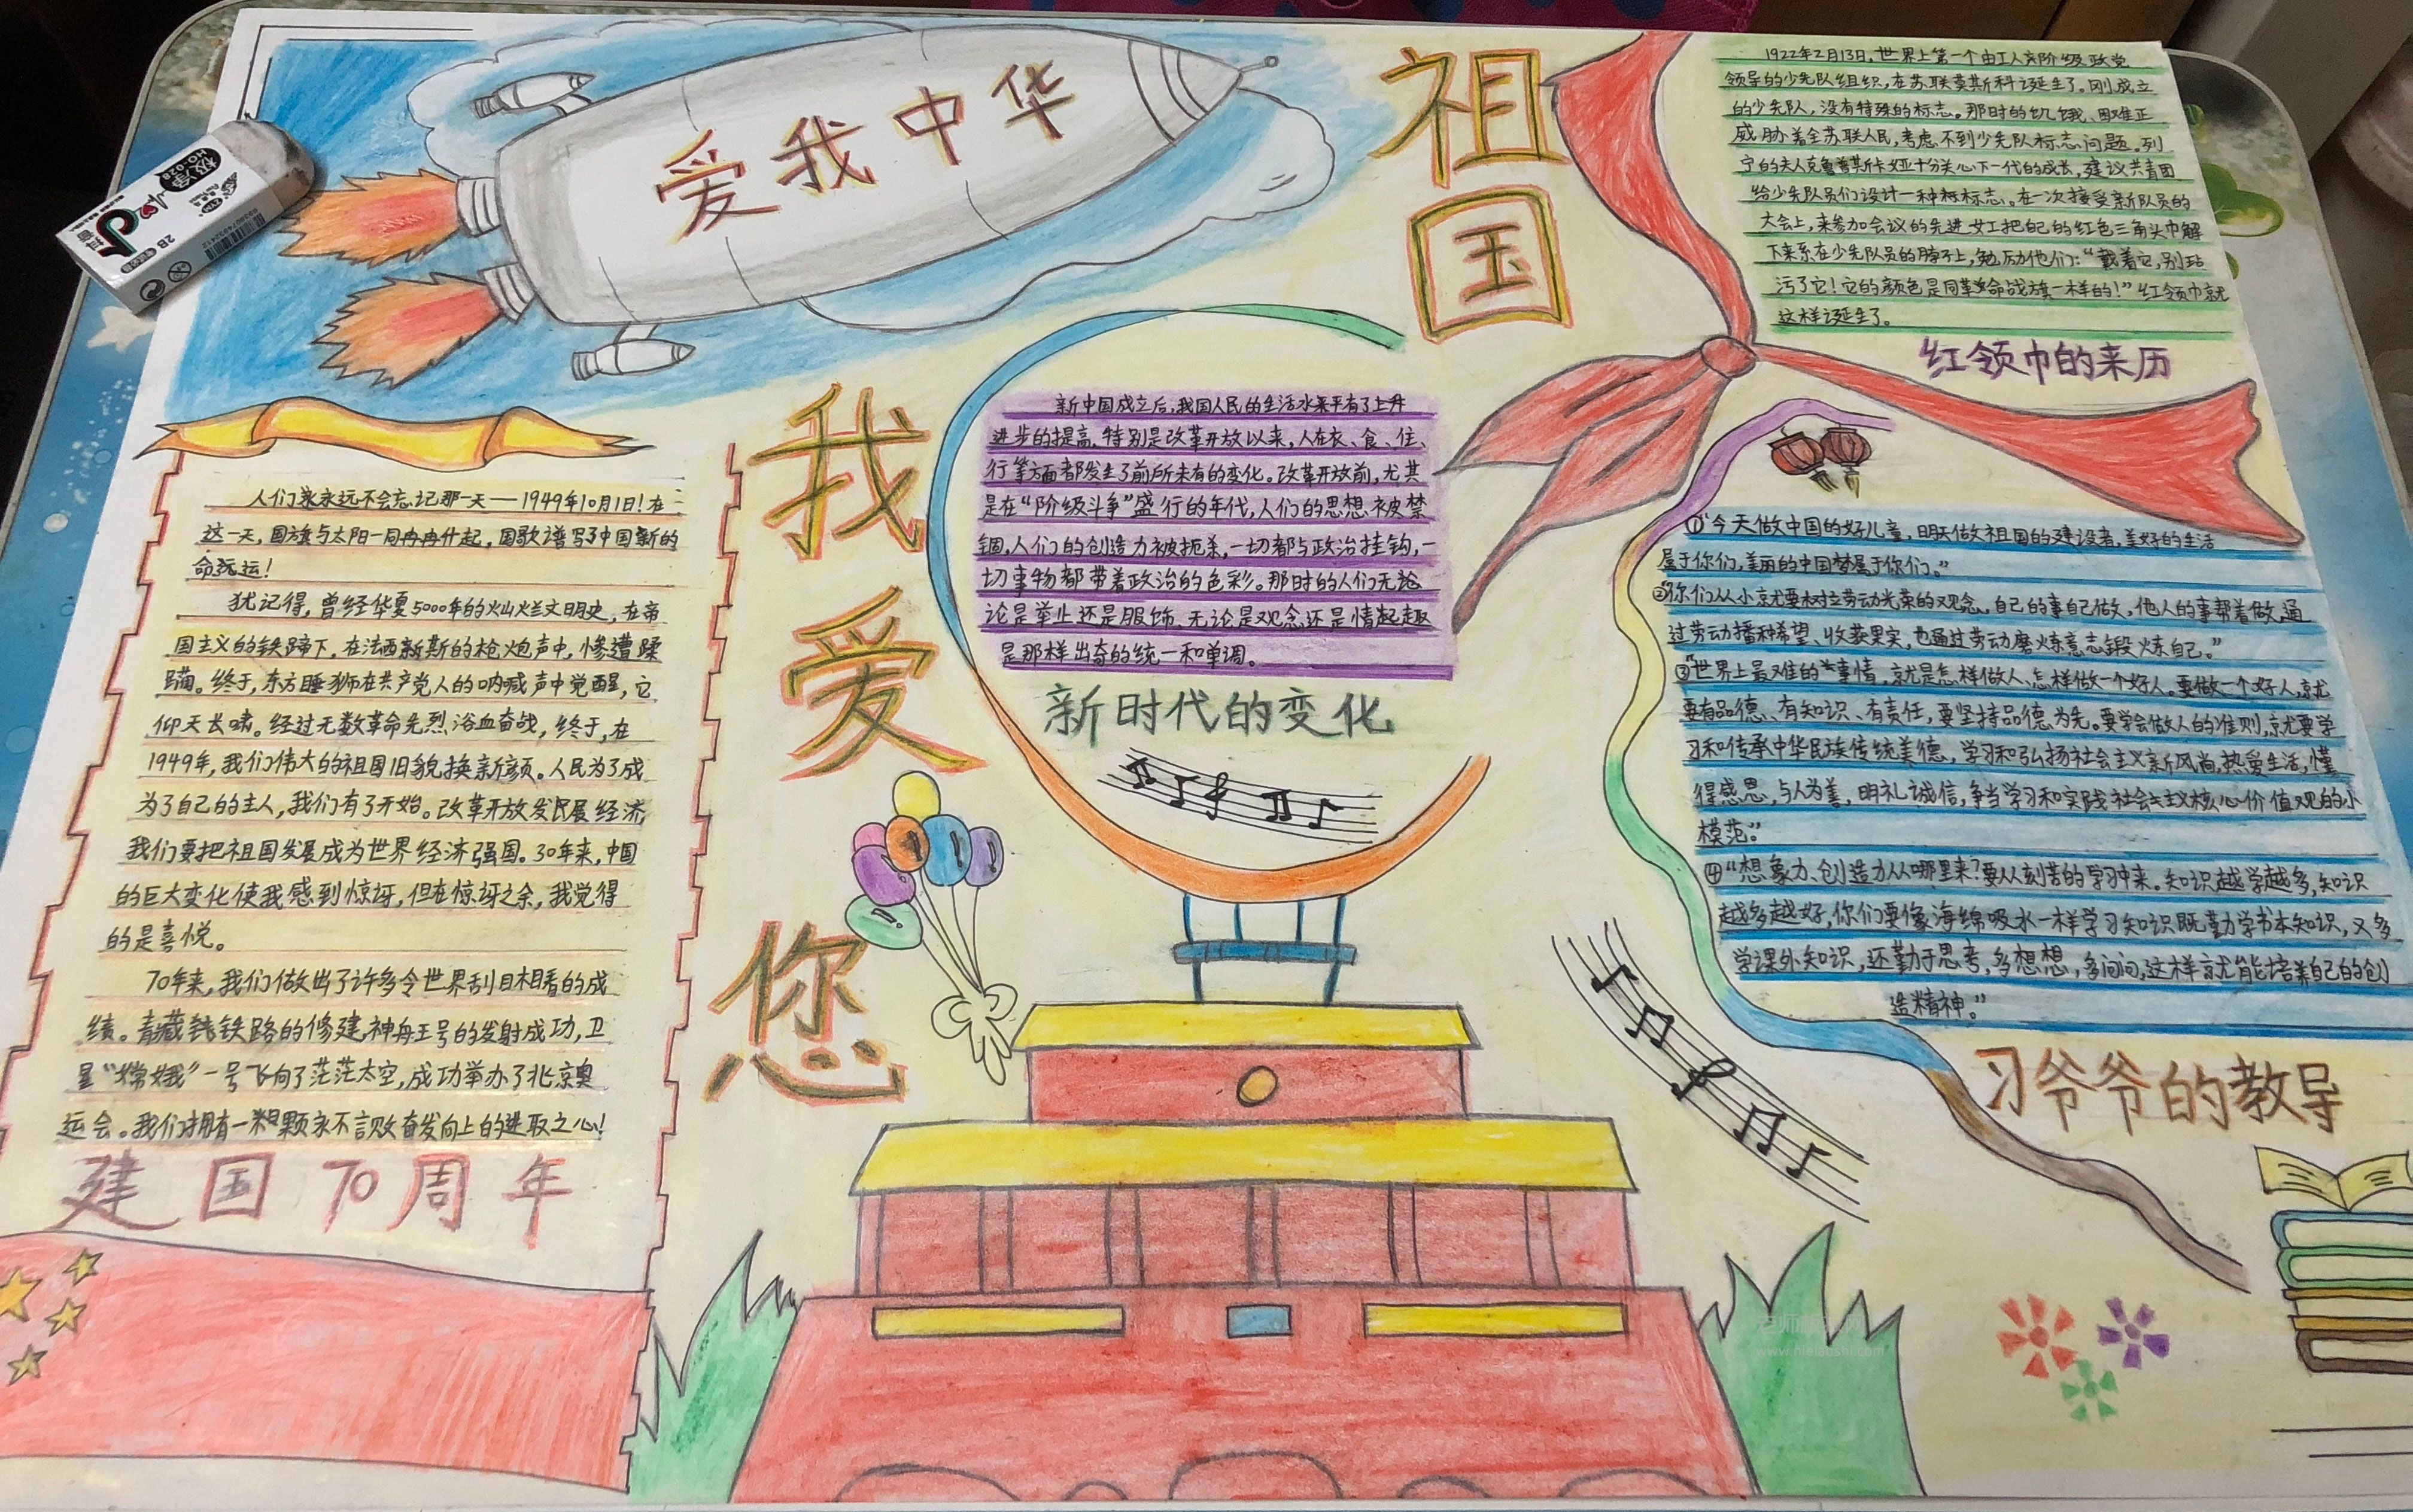 爱我中华
祖国
我爱您
人们永远不会忘记那一天——1949年10月1日!在
这一天,国旗与太阳一同冉冉升起,国歌谱写了中国新的
命运!
犹记得,曾经华夏5000年的火山火兰文明史,在帝
国主义的铁蹄下,在法西斯的枪炮声中,惨遭蹂
躏。终于,东方睡狮在共产党人的呐喊声中觉醒,它
仰天长啸。经过无数革命先烈浴血奋战,终于,在
1949年,我们伟大的祖国旧貌换新颜。人民为了成
为了自己的主人,我们有了开始。改革开放发展经济,
我们要把祖国发展成为世界经济强国。30年来,中国
的巨大变化使我感到惊讶,但在惊讶之余,我觉得
的是喜悦。
70年来,我们做出了许多令世界刮目相看的成
绩。青藏铁路的修建,神舟五号的发射成功,卫
星“嫦娥”一号飞向了茫茫太空,成功举办了北京奥
运会。我们拥有一颗永不言败奋发向上的进取之心!
建国70周年
新中国成立后,我国人民的生活水平有了上升
进步的提高,特别是改革开放以来,人在衣、食、住、
行等方面都发生了前所未有的变化。改革开放前,尤其
是在“阶级斗争”盛行的年代,人们的思想被禁
锢,人们的创造力被扼杀,一切都与政治挂钩,一
切事物都带着政治的色彩。那时的人们无论
论是举止还是服饰,无论是观念还是情起趣
是那样出奇的统一和单调。
新时代的变化
1922年2月13日,世界上第一个由工人产阶级政党
领导的少先队组织,在苏联莫斯科诞生了。刚成立
的少先队,没有特殊的标志。那时的饥饿、困难正
威胁着全苏联人民,考虑不到少先队标志问题。列
宁的夫人克鲁普斯卡娅十分关心下一代的成长,建议共青团
给少先队员们设计一种标志。在一次接受新队员的
大会上,来参加会议的先进女工把自己的红色三角头巾解
下来系在少先队员的脖子上,勉励他们:“戴着它,别玷
污了它!它的颜色是同革命战旗一样的!”红领巾就
这样诞生了。
红领巾的来历
①“今天做中国的好儿童,明天做祖国的建设者,美好的生活
属于你们,美丽的中国梦属于你们。”
②“你们从小就要树立劳动光荣的观念,自己的事自己做,他人的事帮着做,通
过劳动播种希望、收获果实,也通过劳动磨炼意志锻炼自己。”
③“世界上最难的事情,就是怎样做人、怎样做一个好人。要做一个好人,就
要有品德、有知识、有责任,要坚持品德为先。要学会做人的准则,就要学
习和传承中华民族传统美德,学习和弘扬社会主义新风尚,热爱生活,懂
得感恩,与人为善,明礼诚信,争当学习和实践社会主义核心价值观的小
模范。”
④“想象力、创造力从哪里来?要从刻苦的学习中来。知识越学越多,知识
越多越好,你们要像海绵吸水一样学习知识既勤学书本知识,又多
学课外知识,还勤于思考,多想想,多问问,这样就能培养自己的创
造精神。”
习爷爷的教导
HO-028
2B
抖音